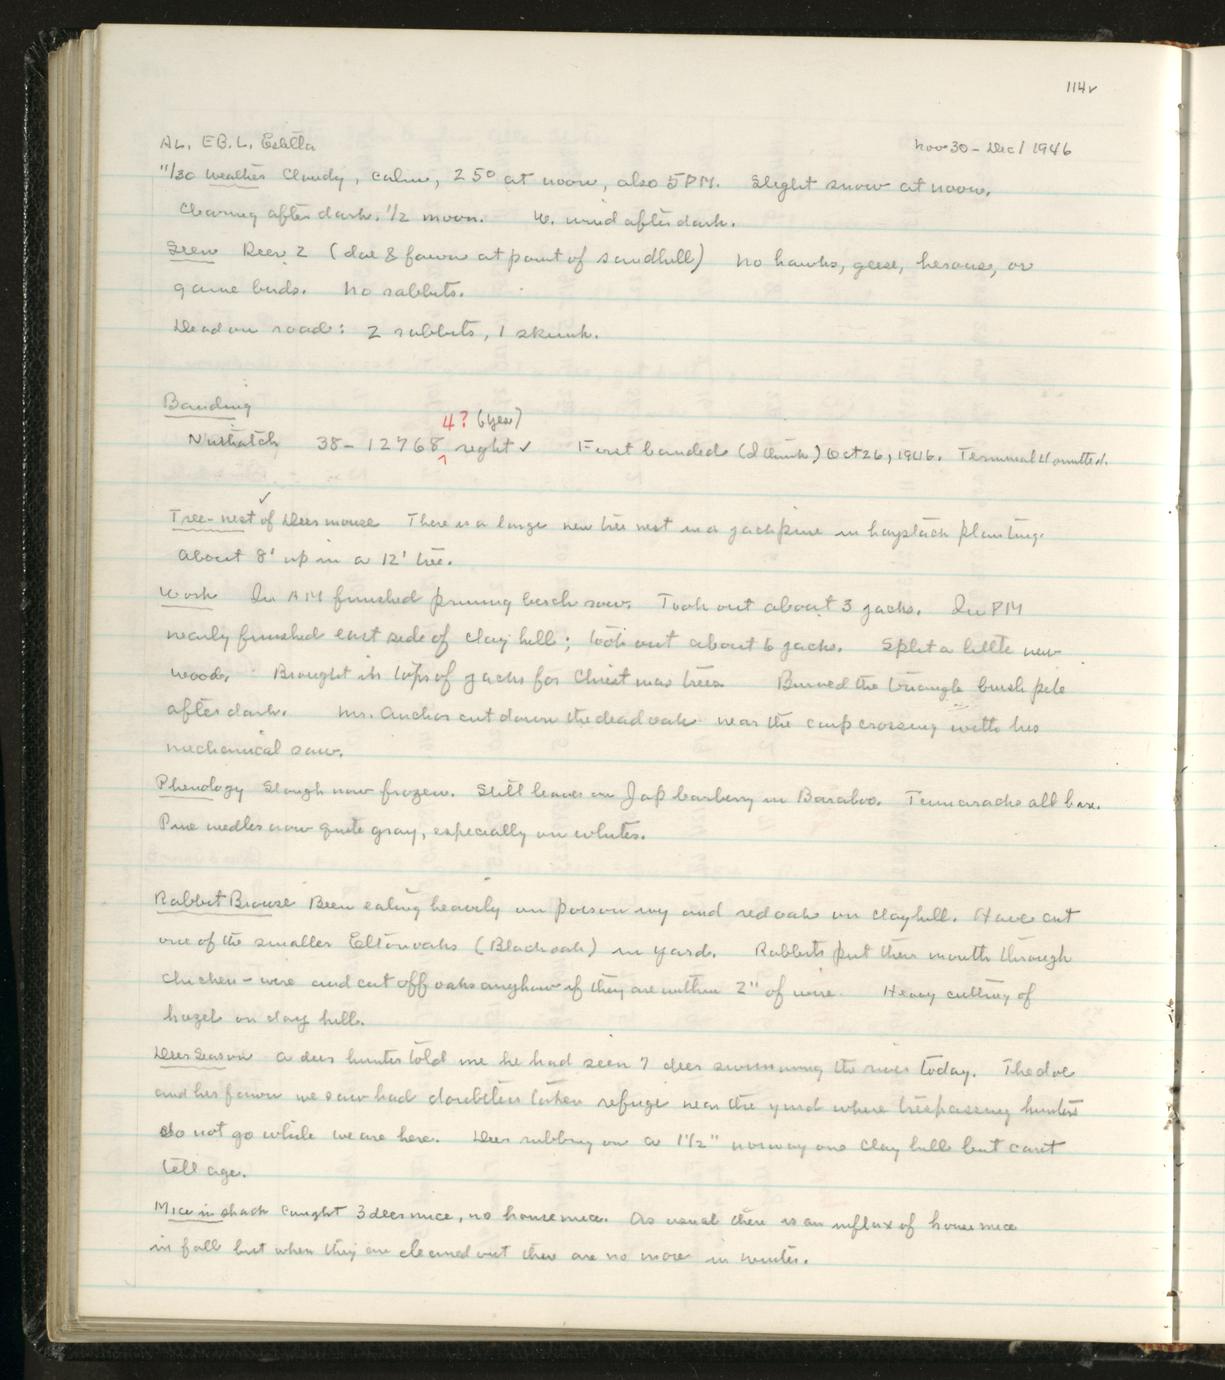 114v
AL, EBL, Estella Nov 30 - Dec 1 1946
11/30 Weather Cloudy, calm, 25° at noon, also 5PM. Slight snow at noon.
Clearing after dark. 1/2 moon. W. wind after dark.
Seen Deer 2 (doe & fawn at point of sandhill) No hawks, geese, herons, or
game birds. No rabbits.
Dead on road: 2 rabbits, 1 skunk.
Banding
4? (yes)
Nuthatch 38-12768 right ✓ First banded (I think) Oct 26, 1946. Terminal 4 omitted.
Tree-nest of Deermouse There is a large new tree nest in a jackpine in haystack planting.
About 8' up in a 12' tree.
Work In AM finished pruning birch row. Took out about 3 jacks. In PM
nearly finished east side of clay hill; took out about 6 jacks. Split a little new
wood. Brought in tops of jacks for Christmas trees. Burned the triangle brush pile
after dark. Mr. Anchor cut down the dead oak near the carp crossing with his
mechanical saw.
Phenology Slough now frozen. Still leaves on Jap barberry in Baraboo. Tamaracks all bare.
Pine needles now quite gray, especially on whites.
Rabbit Browse Been eating heavily on poison ivy and red oak on clay hill. Have cut
one of the smaller Elton oaks (Black oak) in yard. Rabbits put their mouth through
chicken-wire and cut off oaks anyhow if they are within 2" of wire. Heavy cutting of
hazel on clay hill.
Deer Season A deer hunter told me he had seen 7 deer swimming the river today. The doe
and her fawn we saw had doubtless taken refuge near the yard where trespassing hunters
do not go while we are here. Deer rubbing on a 1 1/2" norway on clay hill but can't
tell age.
Mice in shack Caught 3 deermice, no housemice. As usual there is an influx of housemice
in fall but when they are cleaned out there are no more in winter.